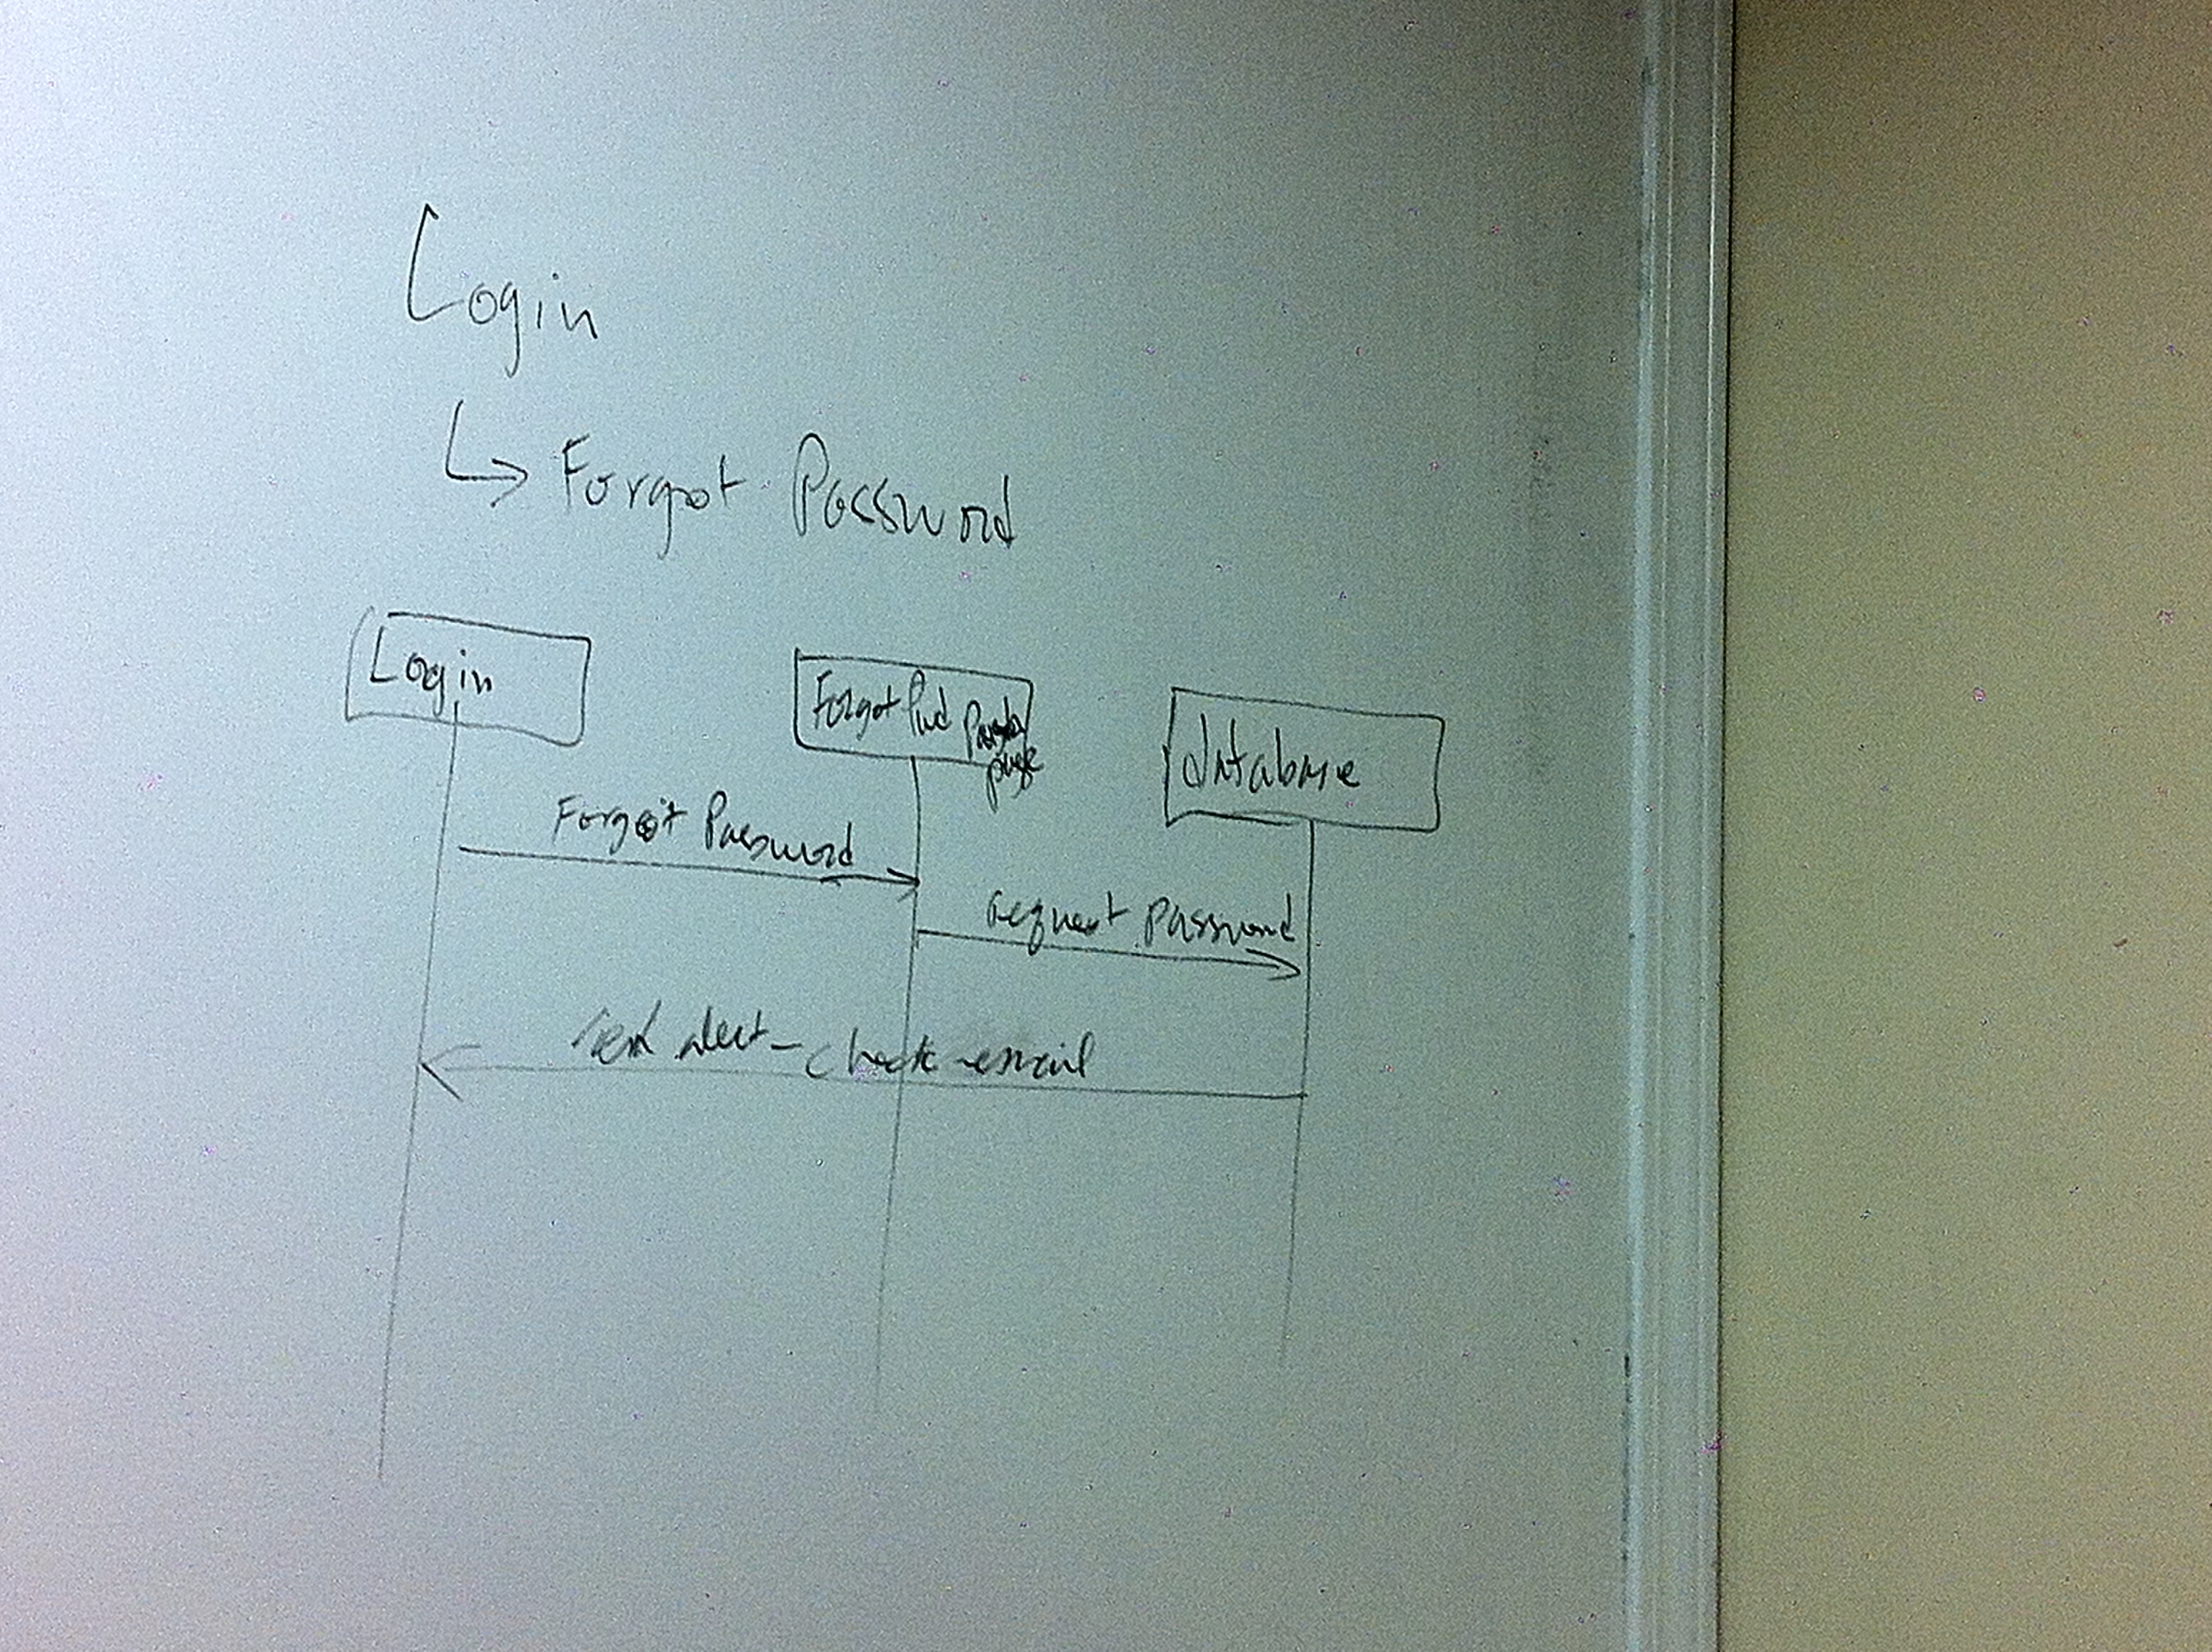 Login
Forgot Password
Login
Forgot Pwd
page
database
Forgot Password
request password
Send alert - check email